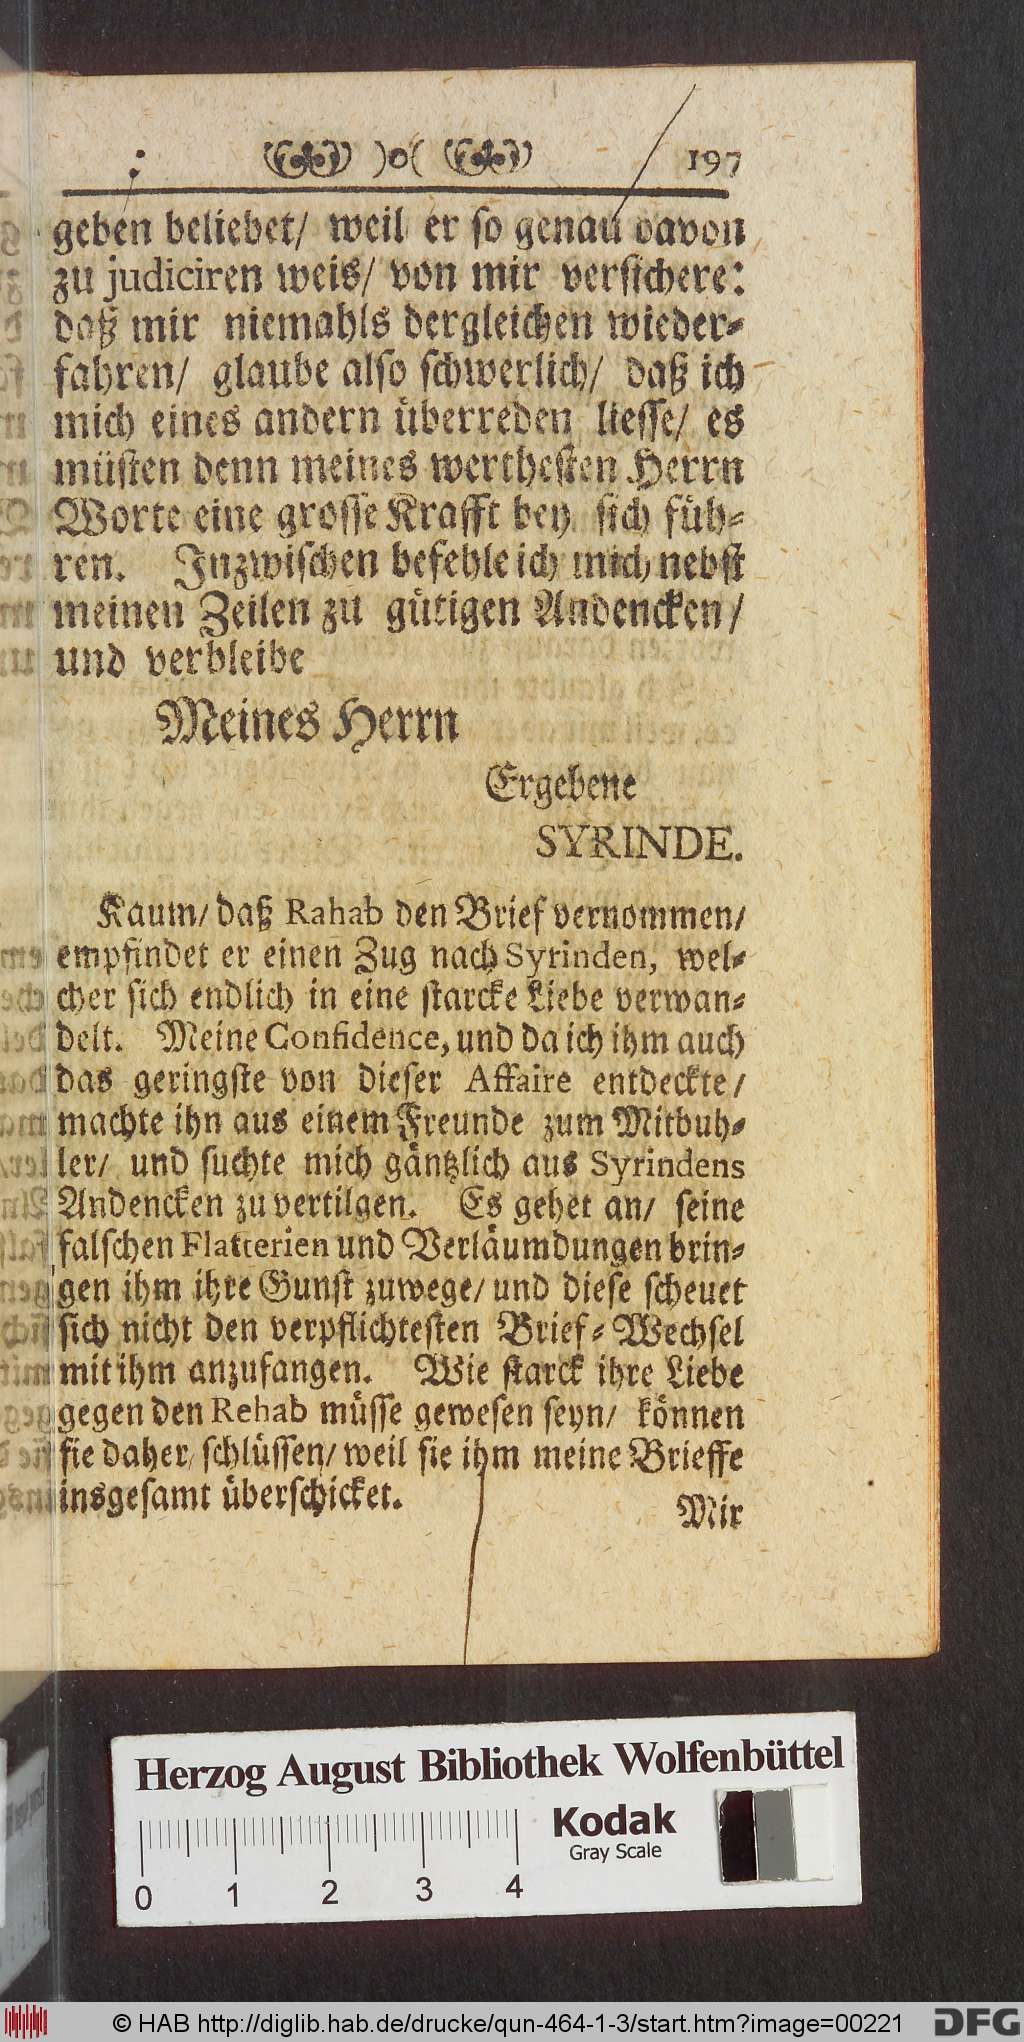 )o( 197
geben beliebet/ weil er so genau davon
zu judiciren weis/ von mir versichere:
daß mir niemahls dergleichen wieder⸗
fahren/ glaube also schwerlich/ daß ich
mich eines andern überreden liesse/ es
müsten denn meines werthesten Herrn
Worte eine grosse Krafft bey sich füh⸗
ren. Inzwischen befehle ich mich nebst
meinen Zeilen zu gütigen Andencken/
und verbleibe
Meines Herrn
Ergebene
SYRINDE.
Kaum/ daß Rahab den Brief vernommen/
empfindet er einen Zug nach Syrinden, wel⸗
cher sich endlich in eine starcke Liebe verwan⸗
delt. Meine Confidence, und da ich ihm auch
das geringste von dieser Affaire entdeckte/
machte ihn aus einem Freunde zum Mitbuh⸗
ler/ und suchte mich gäntzlich aus Syrindens
Andencken zu vertilgen. Es gehet an/ seine
falschen Flatterien und Verläumdungen brin⸗
gen ihm ihre Gunst zuwege/ und diese scheuet
sich nicht den verpflichtesten Brief⸗Wechsel
mit ihm anzufangen. Wie starck ihre Liebe
gegen den Rehab müsse gewesen seyn/ können
sie daher schlüssen/ weil sie ihm meine Brieffe
insgesamt überschicket.
Mir
Herzog August Bibliothek Wolfenbüttel
Kodak
Gray Scale
0 1 2 3 4
© HAB http://diglib.hab.de/drucke/qun-464-1-3/start.htm?image=00221
DFG